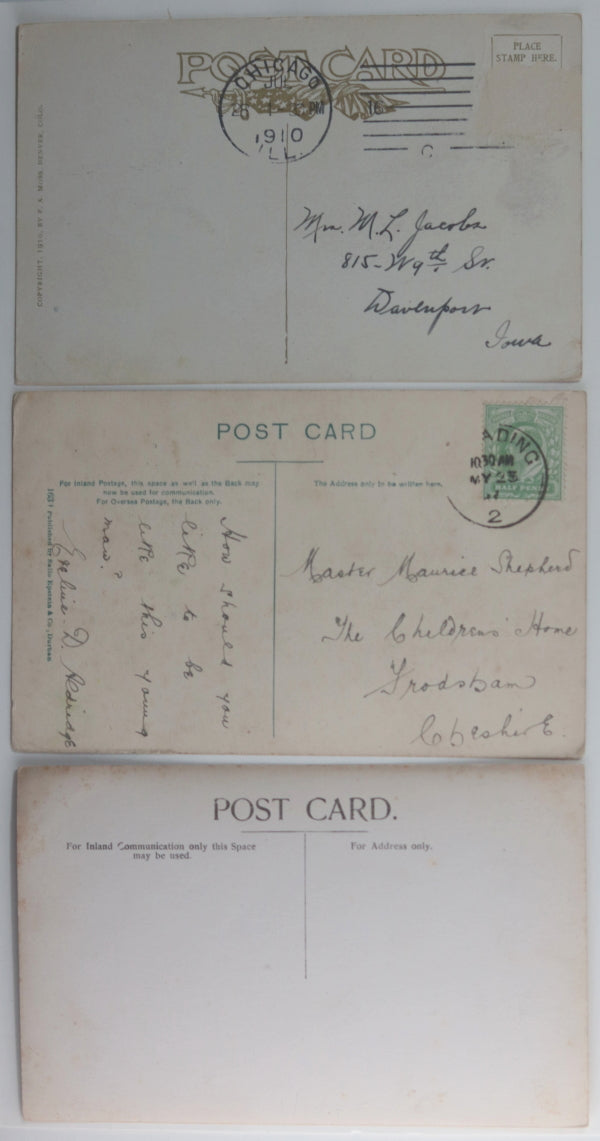 POST CARD
PLACE
STAMP HERE.
CHICAGO
1910
ILL.
C
COPYRIGHT, 1910, BY F. A. MOSS, DENVER, COLO.
Mrs. M. L. Jacobs
815-W 9th St.
Davenport
Iowa
POST CARD
For Inland Postage, this space as well as the Back may
now be used for communication.
For Oversea Postage, the Back only.
The Address only to be written here.
ADING
10.30 AM
MY 23
2
HALF PENNY
Published by Sallo Epstein & Co., Durban
How should you
like to be
like this young
man?
Eveline. D. Aldridge
Master Maurice Shepherd
The Childrens' Home
Frodsham
Cheshire.
POST CARD.
For Inland Communication only this Space
may be used.
For Address only.